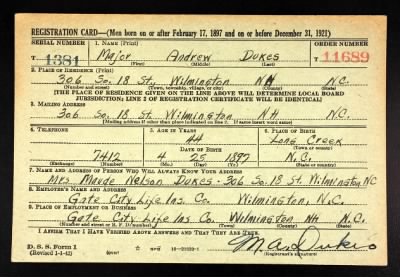 REGISTRATION CARD—(Men born on or after February 17, 1897 and on or before December 31, 1921)
SERIAL NUMBER 1. NAME (Print) ORDER NUMBER
T 1381 Major Andrew Dukes T 11689
(First) (Middle) (Last)
2. PLACE OF RESIDENCE (Print)
306 So. 18 St. Wilmington NH N.C.
(Number and street) (Town, township, village, or city) (County) (State)
[THE PLACE OF RESIDENCE GIVEN ON THE LINE ABOVE WILL DETERMINE LOCAL BOARD
JURISDICTION; LINE 2 OF REGISTRATION CERTIFICATE WILL BE IDENTICAL]
3. MAILING ADDRESS
306 So. 18 St. Wilmington NH N.C.
[Mailing address if other than place indicated on line 2. If same insert word same]
4. TELEPHONE 5. AGE IN YEARS 6. PLACE OF BIRTH
44 Long Creek
DATE OF BIRTH (Town or county)
7412 4 25 1897 N.C.
(Exchange) (Number) (Mo.) (Day) (Yr.) (State or country)
7. NAME AND ADDRESS OF PERSON WHO WILL ALWAYS KNOW YOUR ADDRESS
Mrs. Maude Nelson Dukes - 306 So. 18 St. Wilmington, NC
8. EMPLOYER'S NAME AND ADDRESS
Gate City Life Ins. Co. Wilmington, N.C.
9. PLACE OF EMPLOYMENT OR BUSINESS
Gate City Life Ins. Co. Wilmington NH N.C.
(Number and street or R. F. D. number) (Town) (County) (State)
I AFFIRM THAT I HAVE VERIFIED ABOVE ANSWERS AND THAT THEY ARE TRUE.
M. A. Dukes
D. S. S. Form 1
(Revised 1-1-42) (over) (Registrant's signature)